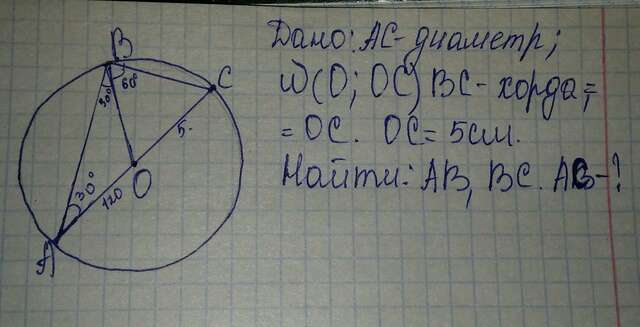 Дано: AC - диаметр;
ω(O; OC) BC - хорда =
= OC. OC = 5 см.
Найти: AB, BC. AC - ?
B
30°
60°
C
5.
O
30°
120
A